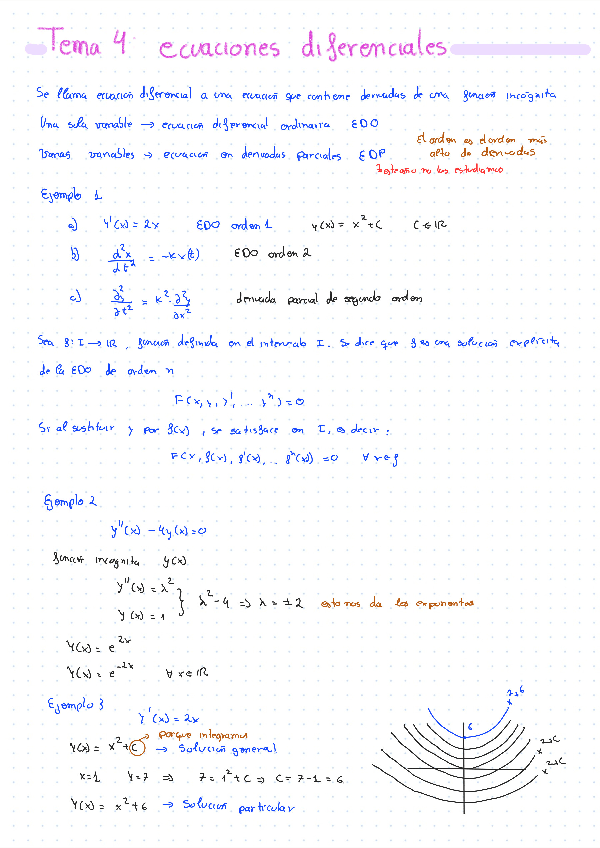 Tema 4 ecuaciones diferenciales
Se llama ecuación diferencial a una ecuación que contiene derivadas de una función incógnita
Una sola variable → ecuación diferencial ordinaria EDO
Varias variables → ecuación en derivadas parciales EDP
El orden es el orden más
alto de derivadas
este año no las estudiamos
Ejemplo 1
a) y'(x) = 2x EDO orden 1 y(x) = x² + C C ∈ IR
b) d²x/dt² = -k x(t) EDO orden 2
c) ∂²y/∂t² = k² · ∂²y/∂x² derivada parcial de segundo orden
Sea f: I → IR, función definida en el intervalo I. Se dice que f es una solución explícita
de la EDO de orden n
F(x, y, y', ... yⁿ) = 0
Si al sustituir y por f(x), se satisface en I, es decir:
F(x, f(x), f'(x), ... fⁿ(x)) = 0 ∀ x ∈ f
Ejemplo 2
y''(x) - 4y(x) = 0
función incognita y(x)
y''(x) = λ²
y(x) = 1
} λ² - 4 => λ = ±2 esto nos da los exponentes
y(x) = e^2x
y(x) = e^-2x ∀ x ∈ IR
Ejemplo 3
y'(x) = 2x
porque integramos
y(x) = x² + C → Solución general
x=1 y=7 => 7 = 1² + C => C = 7-1 = 6
y(x) = x² + 6 → Solución particular
6